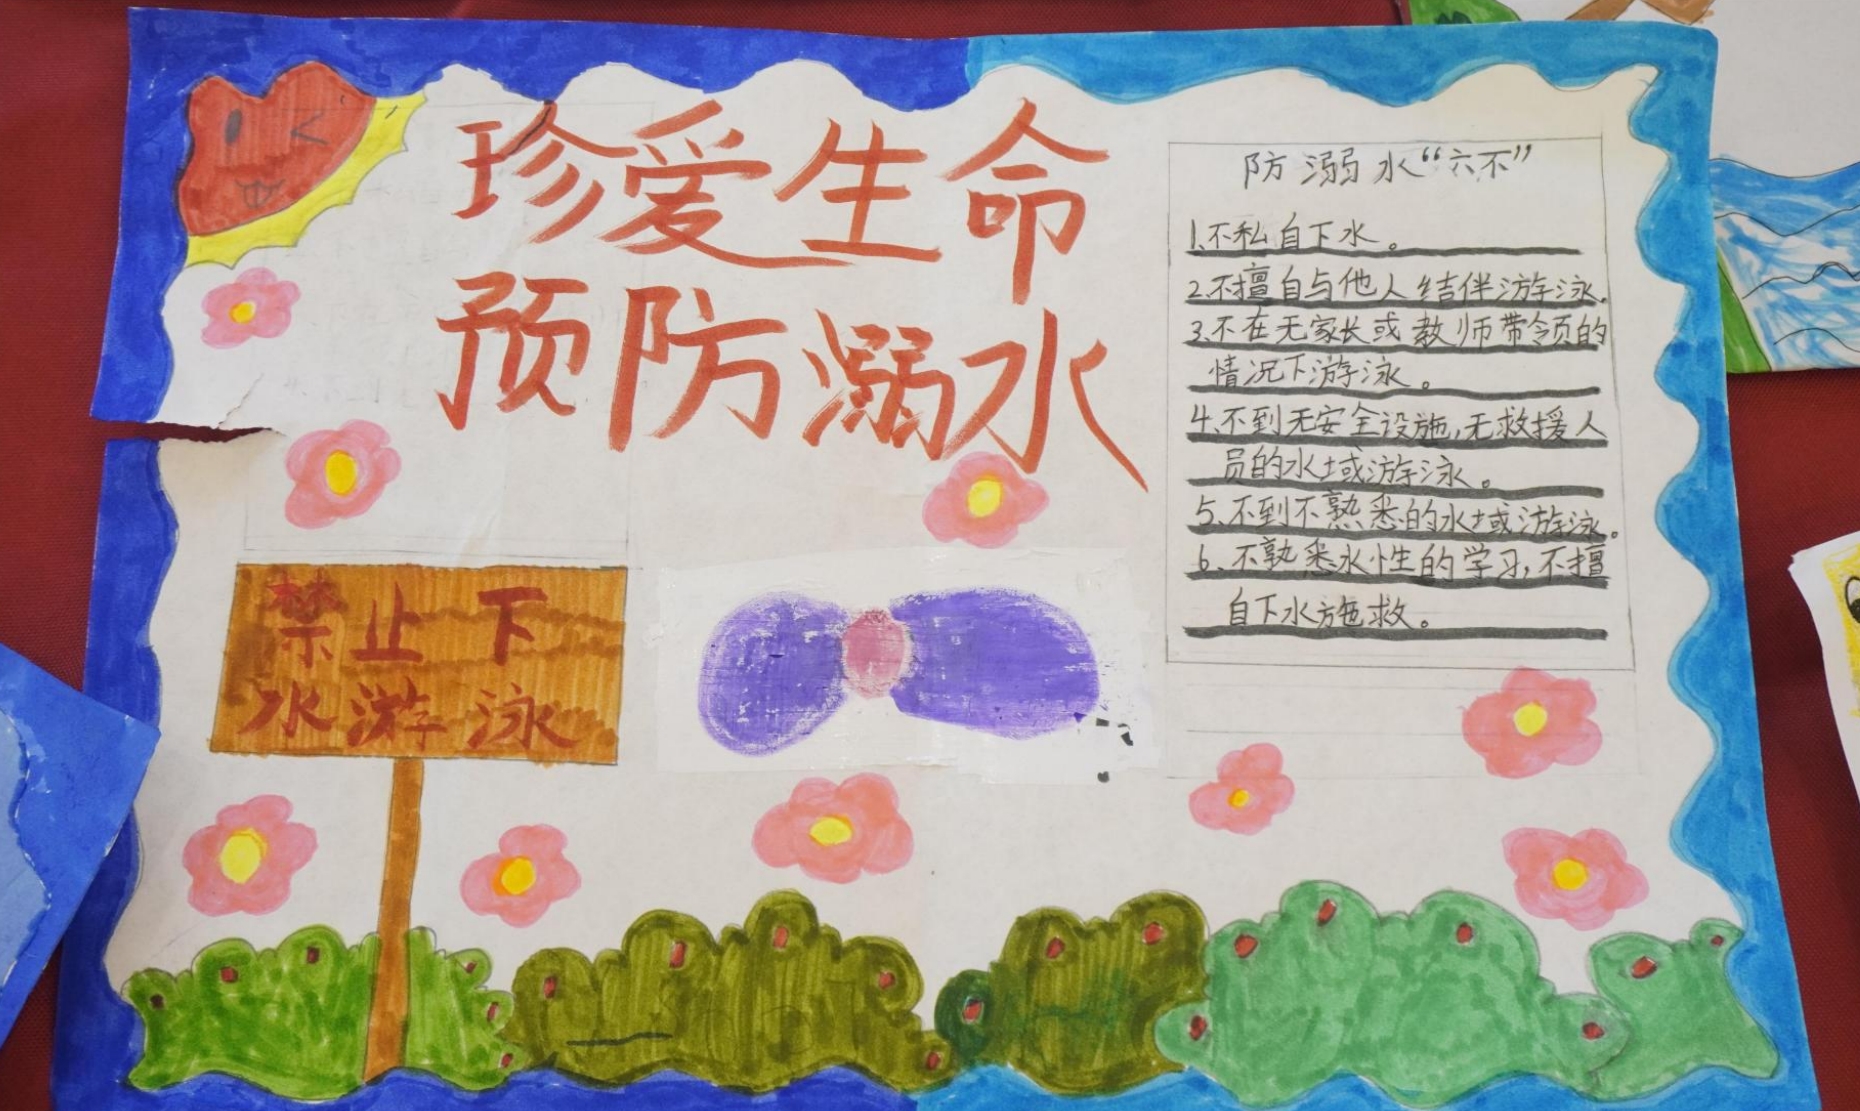 珍爱生命
预防溺水
防溺水“六不”
1、不私自下水。
2.不擅自与他人结伴游泳.
3.不在无家长或教师带领的
情况下游泳。
4、不到无安全设施,无救援人
员的水域游泳。
5、不到不熟悉的水域游泳。
6、不熟悉水性的学习,不擅
自下水施救。
禁止下
水游泳